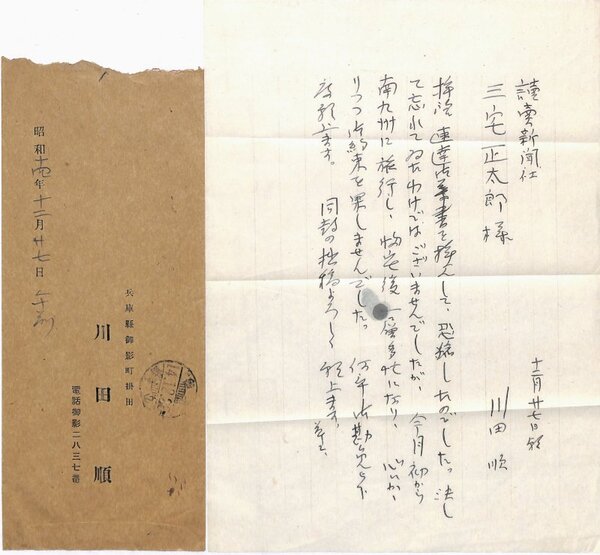 讀賣新聞社
三宅正太郎様
十二月廿七日朝
川田順
拝啓 速達お葉書を拝見して、恐縮したのでした。決し
て忘れてゐたわけではございませんでしたが、今月初から
南九州に旅行し、帰宅後一層多忙になり、心にかゝ
りつつお約束を果しませんでした。何卒御勘弁下
度願上ます。同封の拙稿よろしく願上ます。草々
兵庫縣御影町掛田
川田順
電話御影二八三七番
昭和十四年十二月廿七日